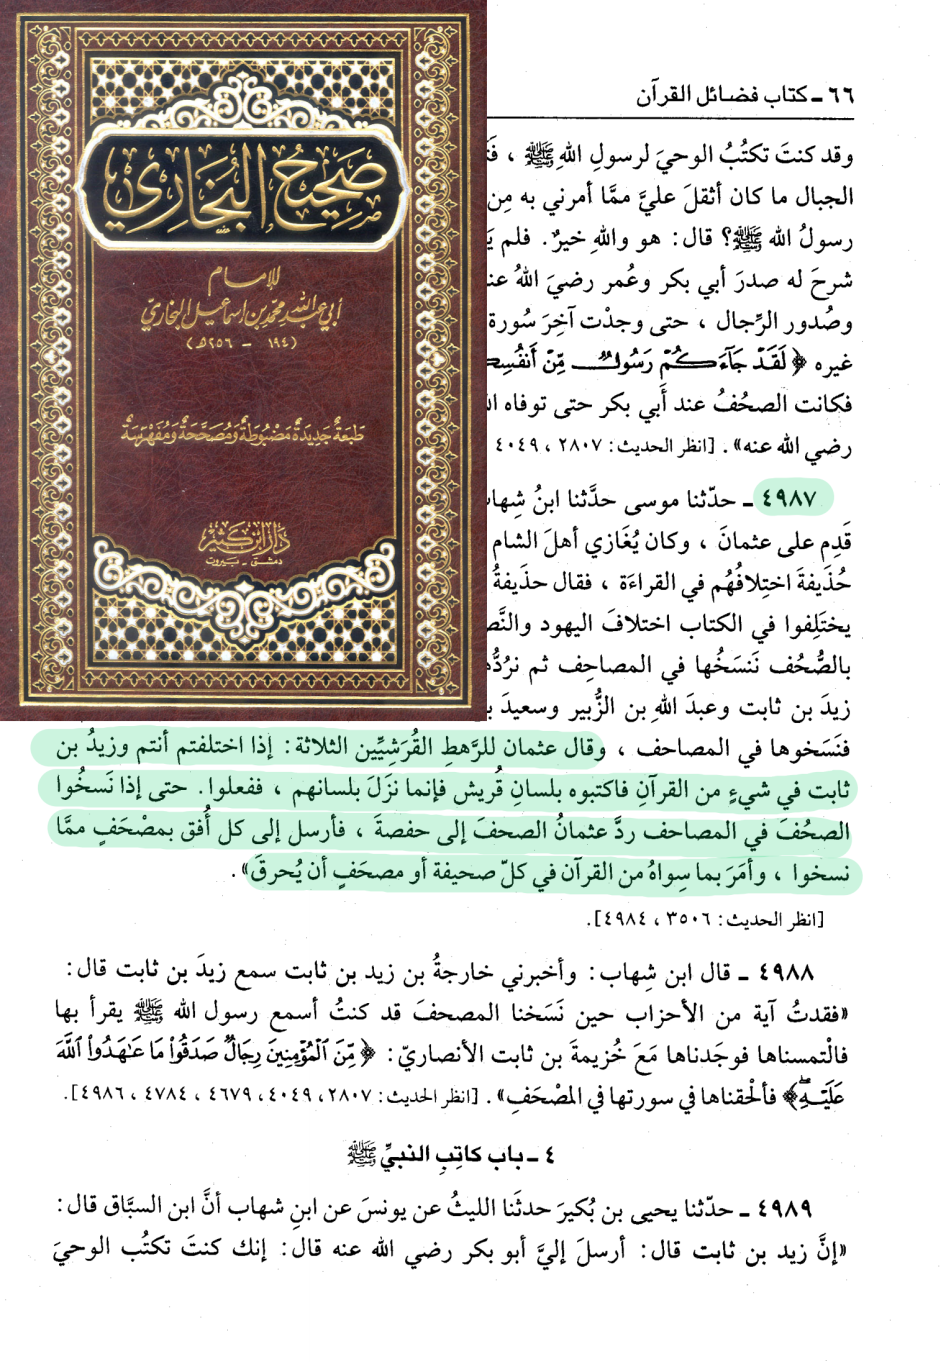 صَحِيحُ البُخَارِي
للإمام
أبي عبد الله محمد بن إسماعيل البخاريّ
(١٩٤ - ٢٥٦ هـ)
طَبعَةٌ جَديدَةٌ مَضبُوطَةٌ وَمُصَحَّحَةٌ وَمُفَهْرَسَةٌ
دَارُ ابن كَثير
دمشق - بيروت
٦٦ ـ كتاب فضائل القرآن
وقد كنتَ تكتُبُ الوحيَ لرسولِ اللهِ ﷺ ،
الجبال ما كان أثقلَ عليَّ ممَّا أمرني به مِن
رسولُ الله ﷺ؟ قال: هو واللهِ خيرٌ. فلم
شرحَ له صدرَ أبي بكر وعُمر رضيَ اللهُ
وصُدور الرِّجال ، حتى وجدْت آخِرَ سُورة
غيره ﴿ لَقَدْ جَآءَكُمْ رَسُولٌ مِّنْ
فكانت الصحُفُ عند أبي بكر حتى توفاه
رضي الله عنه» . [انظر الحديث: ٢٨٠٧ ، ٤٠٤٩
٤٩٨٧ ـ حدّثنا موسى حدَّثنا ابنُ
قَدِم على عثمانَ ، وكان يُغازي أهلَ الشام
حُذَيفةَ اختِلافُهُم في القراءَة ، فقال حذَيفةُ
يختَلِفوا في الكتاب اختلافَ اليهود
بالصُّحُف نَنسَخُها في المصاحِف ثم
زيدَ بن ثابت وعبدَ اللهِ بن الزُّبير وسعيدَ
فنَسَخوها في المصاحف ، وقال عثمان للرَّهطِ القُرَشيِّين الثلاثة: إذا اختلفتم أنتم وزيدُ بن
ثابت في شيءٍ من القرآنِ فاكتبوه بلسانِ قُريش فإنما نزَلَ بلسانهم ، ففعلوا. حتى إذا نَسخُوا
الصحُفَ في المصاحف ردَّ عثمانُ الصحفَ إلى حفصةَ ، فأرسل إلى كل أُفق بمصْحَفٍ ممَّا
نسخوا ، وأمَرَ بما سِواهُ من القرآن في كلّ صحيفة أو مصحَفٍ أن يُحرقَ» .
[انظر الحديث: ٣٥٠٦ ، ٤٩٨٤].
٤٩٨٨ ـ قال ابن شِهاب: وأخبرني خارجةُ بن زيد بن ثابت سمع زيدَ بن ثابت قال:
«فقدتُ آية من الأحزاب حين نَسَخنا المصحفَ قد كنتُ أسمع رسول الله ﷺ يقرأ بها
فالْتمسناها فوجَدناها مَعَ خُزيمةَ بن ثابت الأنصاريّ: ﴿ مِّنَ ٱلْمُؤْمِنِينَ رِجَالٌ صَدَقُوا۟ مَا عَٰهَدُوا۟ ٱللَّهَ
عَلَيْهِ﴾ فألْحقناها في سورتها في المصْحَفِ» . [انظر الحديث: ٢٨٠٧ ، ٤٠٤٩ ، ٤٦٧٩ ، ٤٧٨٤ ، ٤٩٨٦].
٤ ـ باب كاتِبِ النبيِّ ﷺ
٤٩٨٩ ـ حدّثنا يحيى بن بُكيرَ حدثَنا الليثُ عن يونسَ عن ابنِ شهاب أنَّ ابن السبَّاق قال:
«إنَّ زيد بن ثابت قال: أرسلَ إليَّ أبو بكر رضي الله عنه قال: إنك كنتَ تكتُب الوحيَ